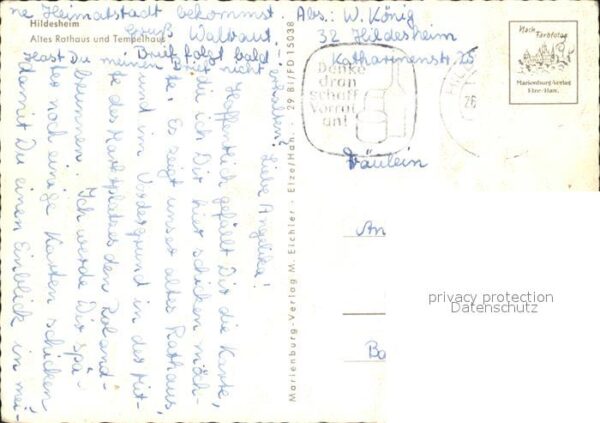 Hildesheim
Altes Rathaus und Tempelhaus
Liebe Angelika!
Hoffentlich gefällt Dir die Karte,
die ich Dir hier schicken möch-
te. Es zeigt unser altes Rathaus,
und im Vordergrund in der Mit-
te des Marktplatzes den Roland-
brunnen. Ich werde Dir spä-
ter noch einige Karten schicken
damit Du einen Einblick in mei-
ne Heimatstadt bekommst.
Gruß Waltraut.
Brief folgt bald
Hast Du meinen Brief nicht
Marienburg-Verlag M. Eichler - Elze/Han. - 29 Bi/FD 15038
Abs.: W. König
32 Hildesheim
Katharinenstr. 25
Denke
dran
schaff
Vorrat
an!
26
Nach
Farbfoto
Marienburg-Verlag
Elze-Han.
Fräulein
An
Ba
privacy protection
Datenschutz